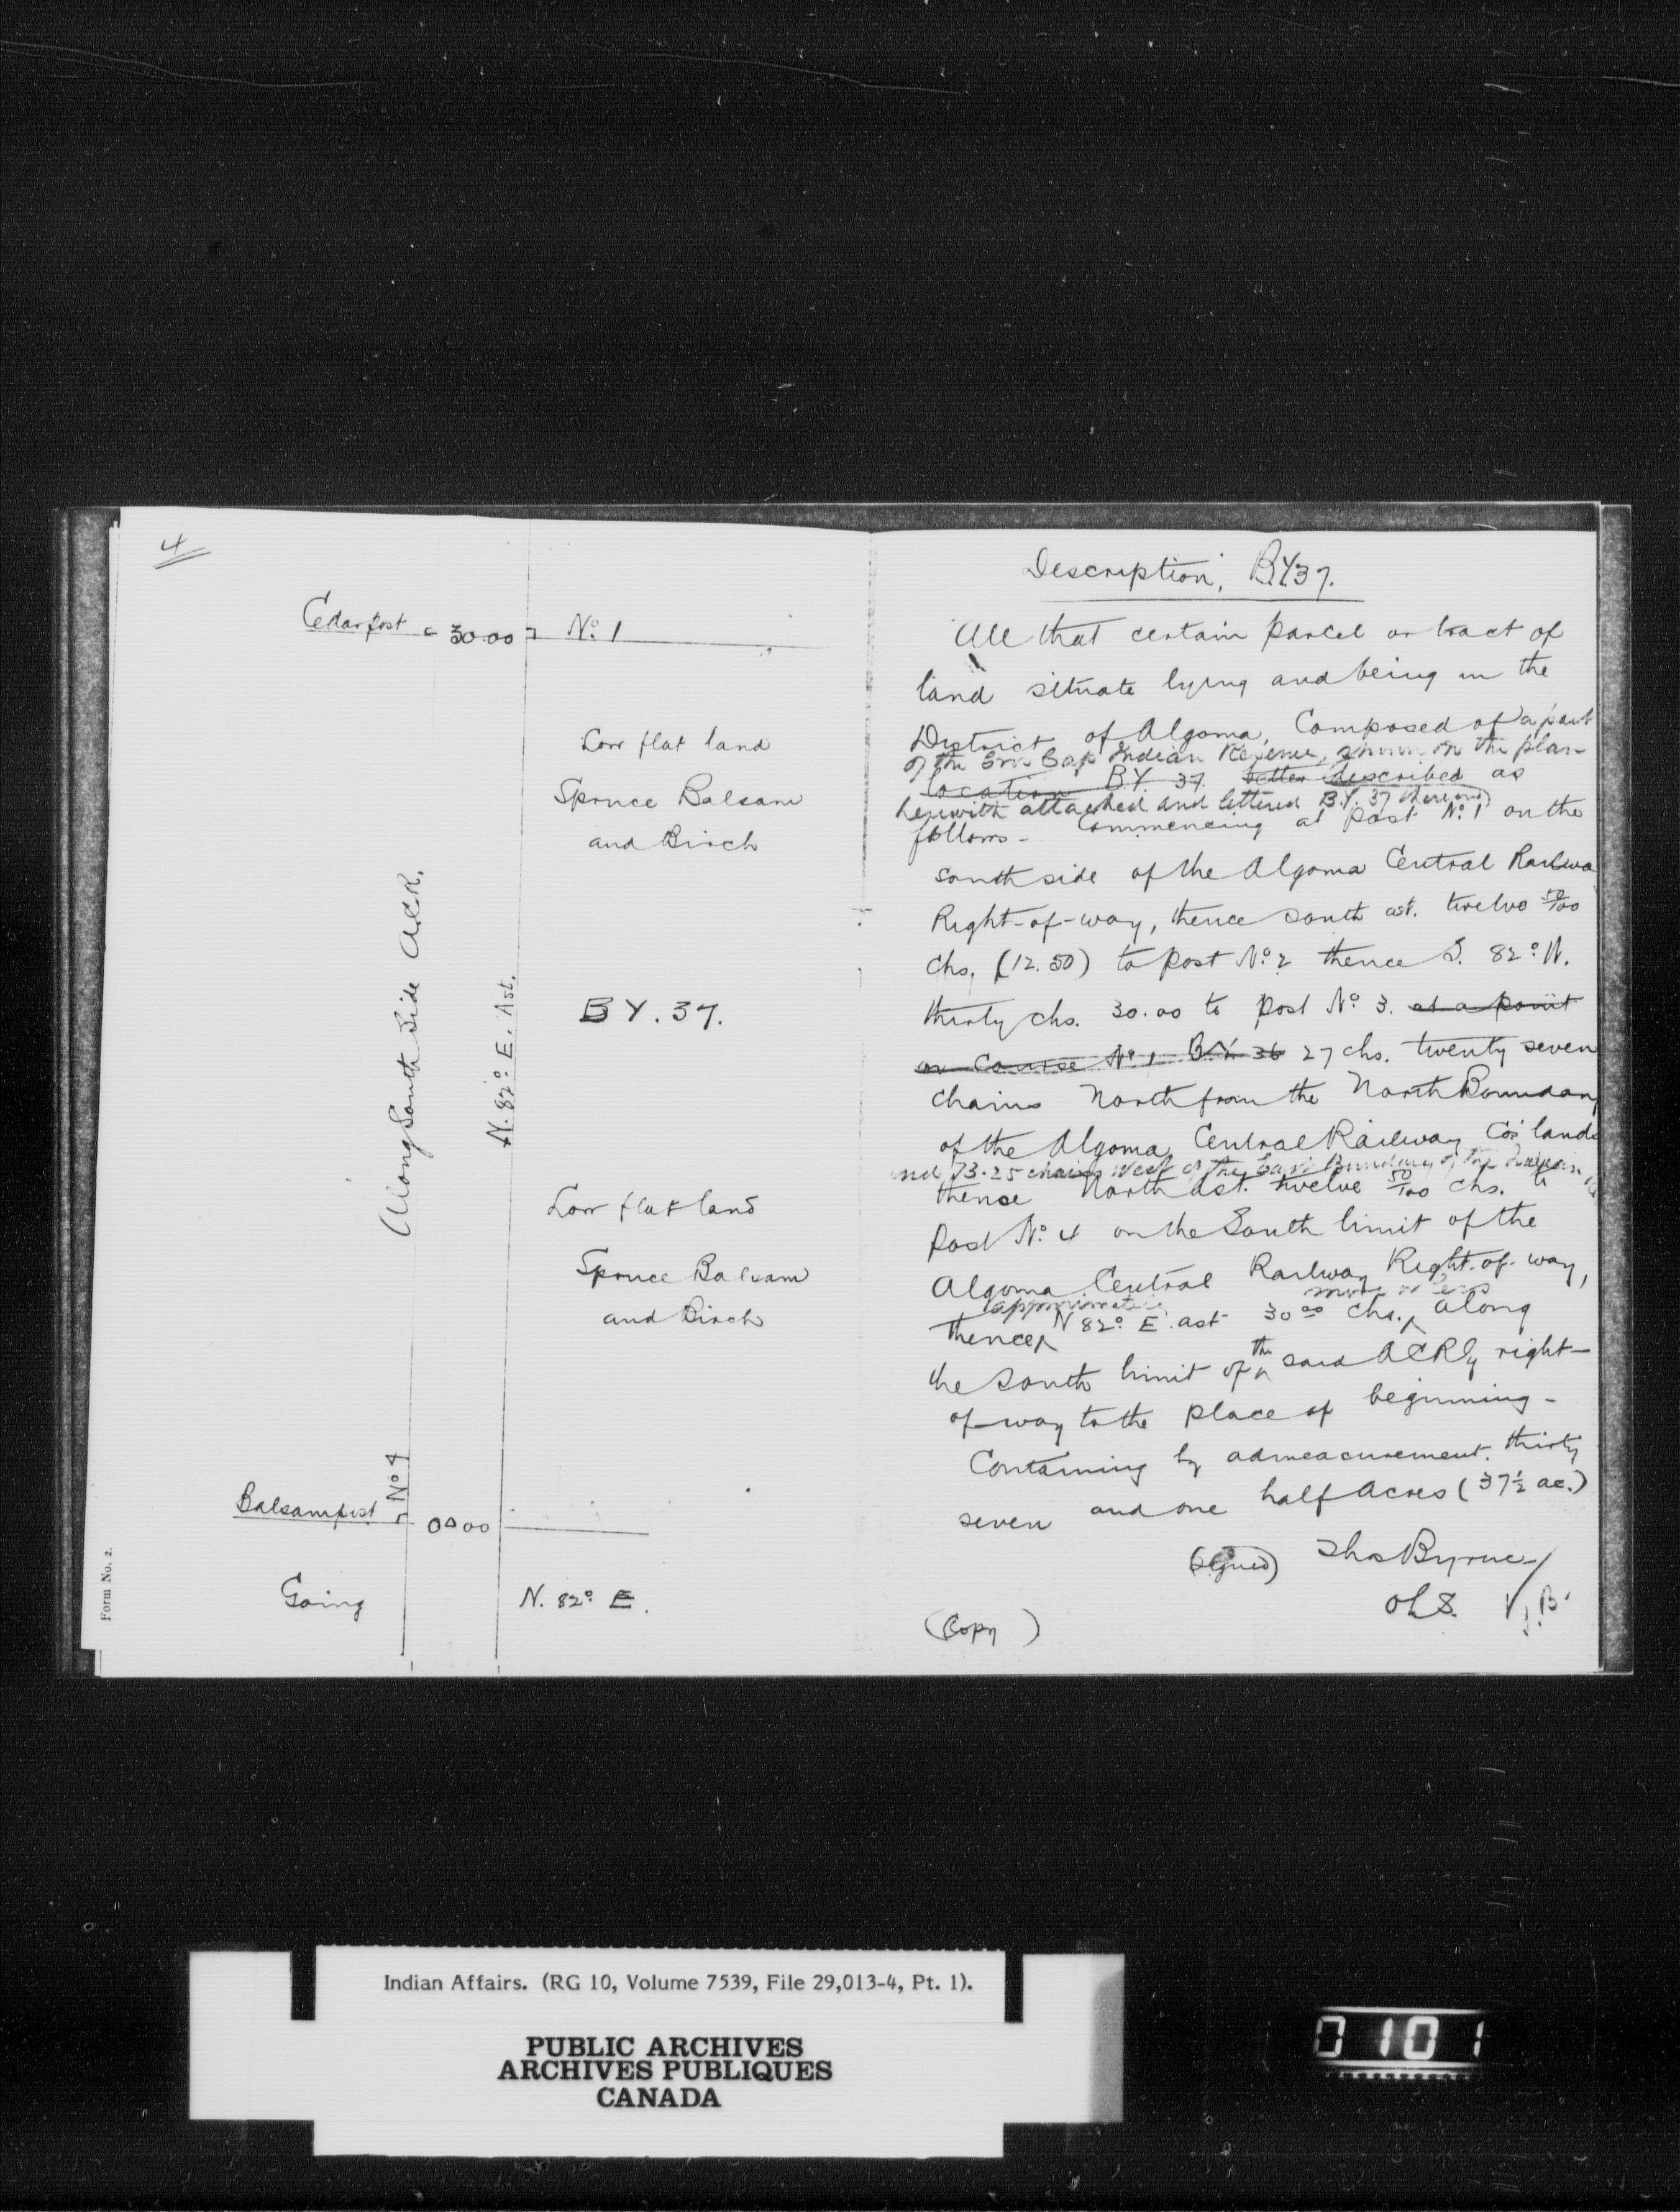 4
Cedar post 30.00 No. 1
Low flat land
Spruce Balsam
and Birch
Along South Side A.C.R.
N. 82° E. Ast.
B Y. 37.
Low flat land
Spruce Balsam
and Birch
Balsam post No 4 00.00
Going N. 82° E.
Form No. 2.
Description, B.Y. 37.
All that certain parcel or tract of
land situate lying and being in the
District of Algoma, Composed of a part
of the Gros Cap Indian Reserve, shown on the plan
location B.Y. 37. better described as
herewith attached and lettered B.Y. 37 thereon
follows - Commencing at post No. 1 on the
south side of the Algoma Central Railwa
Right-of-way, thence south ast. twelve 50/100
chs, (12.50) to post No. 2 thence S. 82° W.
thirty chs. 30.00 to post No 3. at a point
on Course No 1 B.Y. 36 27 chs. twenty seven
chains North from the North Boundary
of the Algoma Central Railway Cos' lands
and 73.25 chains West of the East Boundary of the Indian
thence North Ast. twelve 50/100 chs. to
post No. 4 on the South limit of the
Algoma Central Railway Right-of-way,
approximately more or less
thence N 82° E. ast 30 00 chs. along
the South limit of the said A C Rly right-
of-way to the place of beginning -
Containing by admeasurement thirty
seven and one half Acres (37½ ac.)
(signed) Thos Byrne
O L S. V.B.
(Copy)
Indian Affairs. (RG 10, Volume 7539, File 29,013-4, Pt. 1).
PUBLIC ARCHIVES
ARCHIVES PUBLIQUES
CANADA
0101